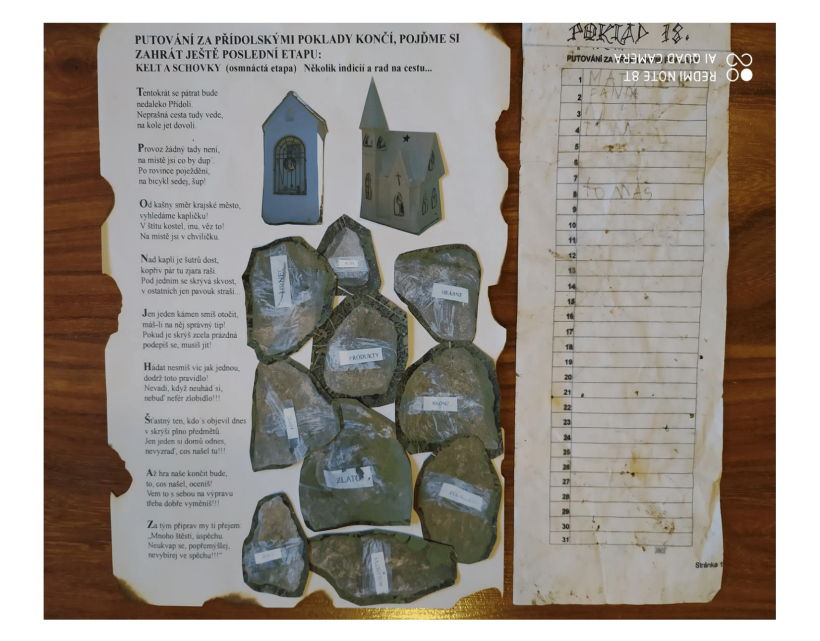 PUTOVÁNÍ ZA PŘÍDOLSKÝMI POKLADY KONČÍ, POJĎME SI
ZAHRÁT JEŠTĚ POSLEDNÍ ETAPU:
KELT A SCHOVKY (osmnáctá etapa) Několik indicií a rad na cestu...
Tentokrát se pátrat bude
nedaleko Přídolí.
Neprašná cesta tudy vede,
na kole jet dovolí.
Provoz žádný tady není,
na místě jsi co by dup'.
Po rovince poježdění,
na bicykl sedej, šup!
Od kašny směr krajské město,
vyhledáme kapličku!
V štítu kostel, inu, věz to!
Na místě jsi v chviličku.
Nad kaplí je šutrů dost,
kopřiv pár tu zjara raší.
Pod jedním se skrývá skvost,
v ostatních jen pavouk straší.
Jen jeden kámen smíš otočit,
máš-li na něj správný tip!
Pokud je skrýš zcela prázdná
podepiš se, musíš jít!
Hádat nesmíš víc jak jednou,
dodrž toto pravidlo!
Nevadí, když neuhád'si,
nebuď nefér zlobidlo!!!
Šťastný ten, kdo's objevil dnes
v skrýši plno předmětů.
Jen jeden si domů odnes,
nevyzraď, cos našel tu!!!
Až hra naše končit bude,
to, cos našel, oceníš!
Vem to s sebou na výpravu
třeba dobře vyměníš!!!
Za tým příprav my ti přejem:
„Mnoho štěstí, úspěchu.
Neukvap se, popřemýšlej,
nevybírej ve spěchu!!!"
OBÁSNĚ
PRODUKTY
ZLATO
POKLAD 18.
PUTOVÁNÍ ZA
REDMI NOTE 8T
AI QUAD CAMERA
1
2
3
4
5
6
7
8 TOMÁŠ
9
10
11
12
13
14
15
16
17
18
19
20
21
22
23
24
25
26
27
28
29
30
31
Stránka 1